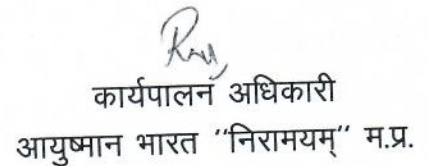 कार्यपालन अधिकारी
आयुष्मान भारत ‘‘निरामयम्’’ म.प्र.